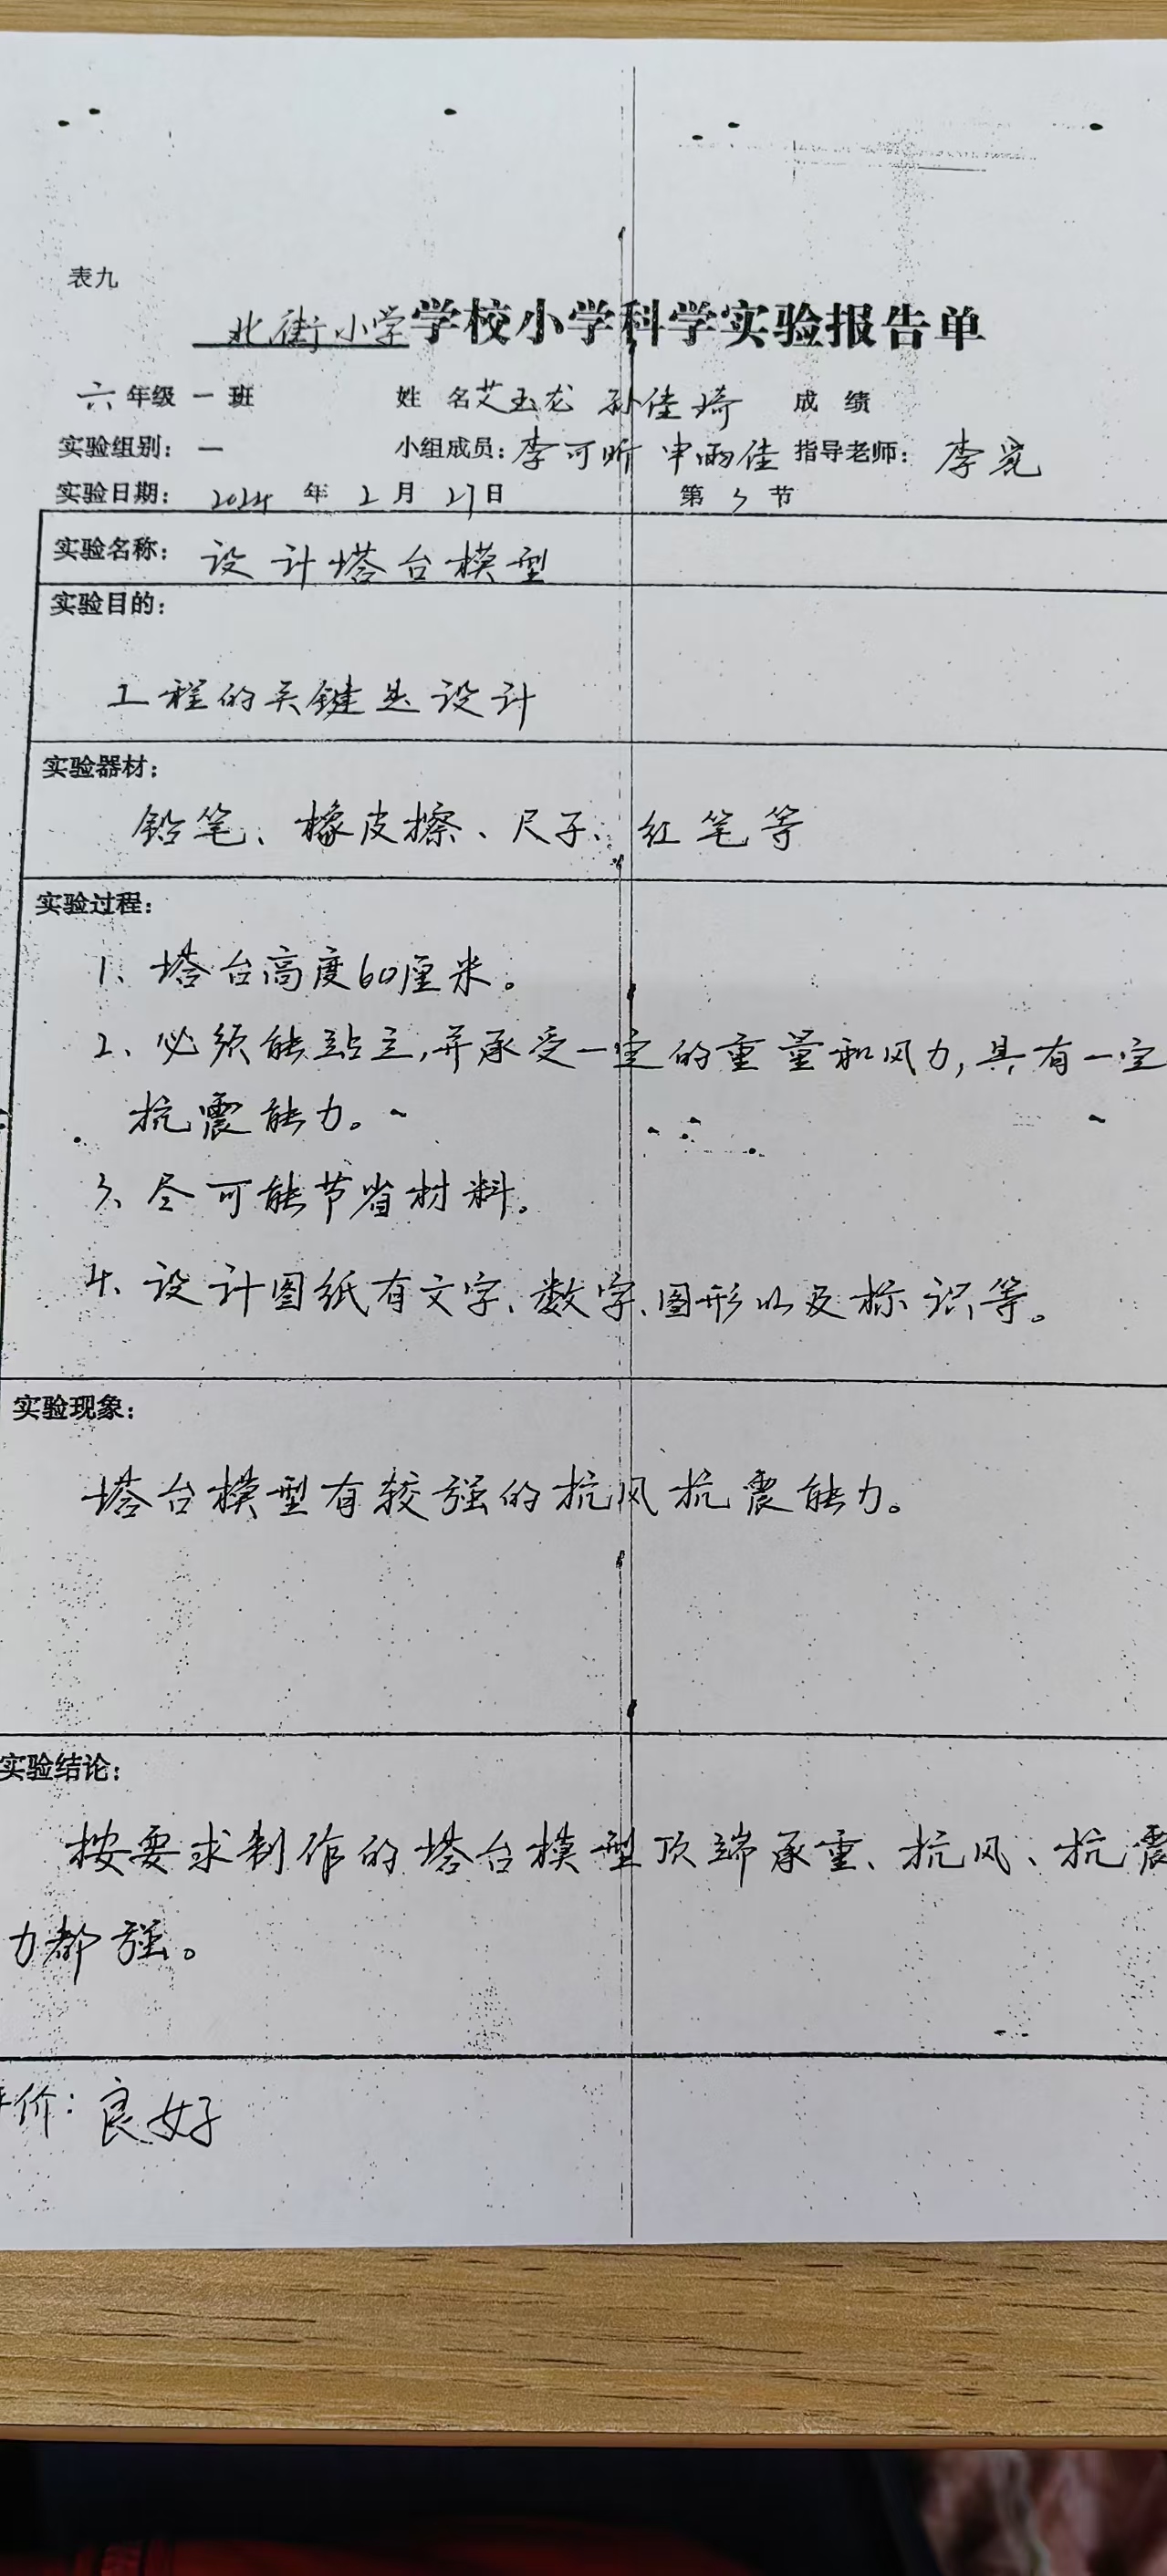 表九
北街小学学校小学科学实验报告单
六年级 一 班 姓 名 艾玉龙 孙佳琦 成 绩
实验组别： 一 小组成员：李可昕 申雨佳 指导老师： 李
实验日期： 2024 年 2 月 27 日 第 3 节
实验名称： 设计塔台模型
实验目的：
工程的关键是设计
实验器材：
铅笔、橡皮擦、尺子、红笔等
实验过程：
1、塔台高度60厘米。
2、必须能站立,并承受一定的重量和风力,具有一定
抗震能力。
3、尽可能节省材料。
4、设计图纸有文字、数字、图形以及标识等。
实验现象：
塔台模型有较强的抗风抗震能力。
实验结论：
按要求制作的塔台模型顶端承重、抗风、抗震
力都强。
评价：良好